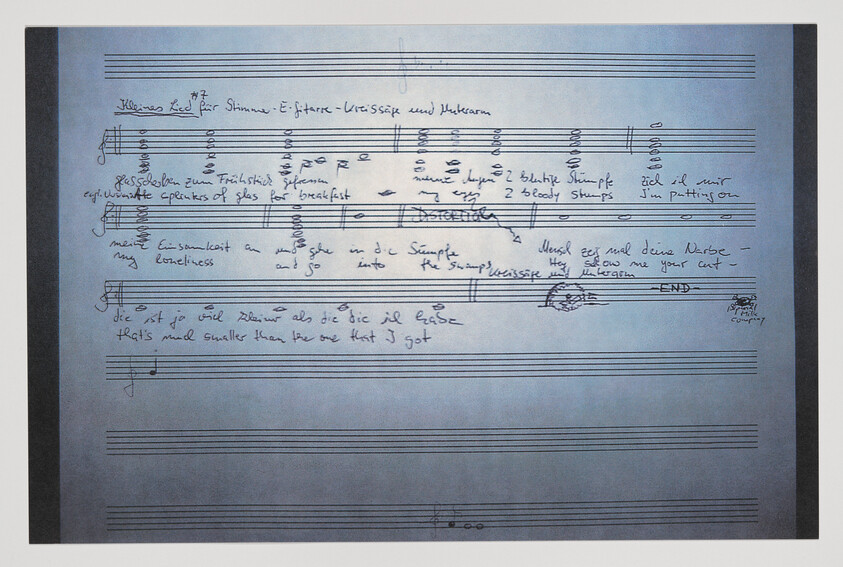 Kleines Lied #7 für Stimme - E-Gitarre - Kreissäge und Unterarm
glasscherben zum Frühstück gefressen meine Augen 2 blutige Stümpfe zieh ich mir
splinters of glas for breakfast my eyes 2 bloody stumps I'm putting on
DISTORTION
meine Einsamkeit an und gehe in die Sümpfe Mensch zeig mal deine Narbe -
my loneliness and go into the swamps Hey show me your cut -
Kreissäge und Unterarm
-END-
die ist ja viel kleiner als die die ich habe
that's much smaller than the one that I got
Milk
Company